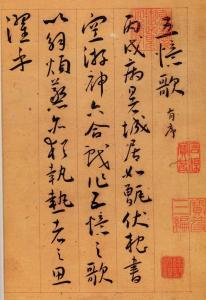 五憶歌 有序
丙戌病暑城居如甑伏枕書
空游神六合戲作五憶之歌
以解煩蒸亦猶執熱者之思
濯乎